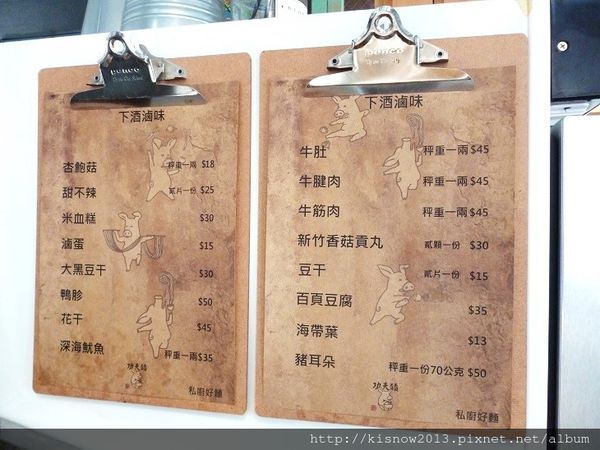 penco
下酒滷味
杏鮑菇 秤重一兩 $18
甜不辣 貳片一份 $25
米血糕 $30
滷蛋 $15
大黑豆干 $30
鴨胗 $50
花干 $45
深海魷魚 秤重一兩$35
功夫豬
私廚好麵
penco
下酒滷味
牛肚 秤重一兩 $45
牛腱肉 秤重一兩 $45
牛筋肉 秤重一兩 $45
新竹香菇貢丸 貳顆一份 $30
豆干 貳片一份 $15
百頁豆腐 $35
海帶葉 $13
豬耳朵 秤重一份70公克 $50
功夫豬
私廚好麵
http://kisnow2013.pixnet.net/album